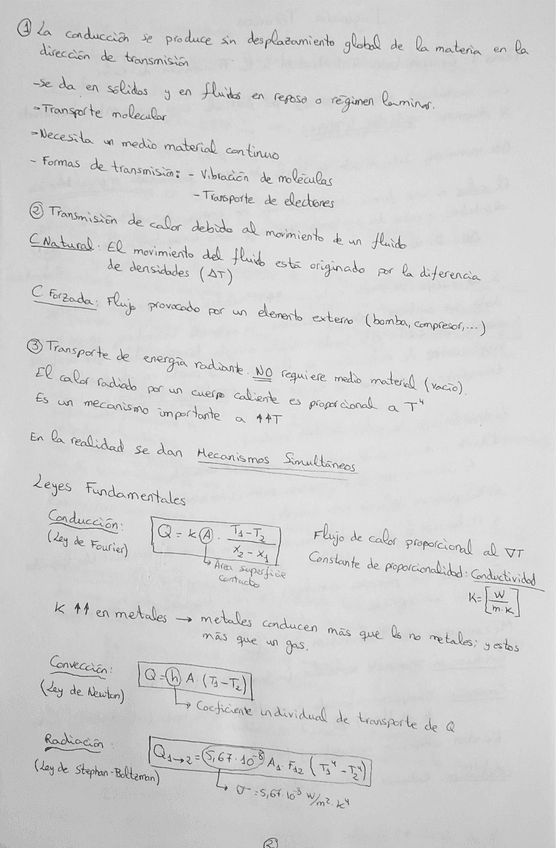 ① La conducción se produce sin desplazamiento global de la materia en la
dirección de transmisión
-Se da en sólidos y en fluidos en reposo o régimen laminar.
-Transporte molecular
-Necesita un medio material continuo
- Formas de transmisión: - Vibración de moléculas
- Transporte de electrones
② Transmisión de calor debido al movimiento de un fluido
C Natural: El movimiento del fluido está originado por la diferencia
de densidades (ΔT)
C Forzada: Flujo provocado por un elemento externo (bomba, compresor,...)
③ Transporte de energía radiante. NO requiere medio material (vacío).
El calor radiado por un cuerpo caliente es proporcional a T⁴
Es un mecanismo importante a ↑↑T
En la realidad se dan Mecanismos Simultáneos
Leyes Fundamentales
Conducción:
(Ley de Fourier)
Q = k A · (T₁-T₂)/(x₂-x₁)
Área superficie
contacto
Flujo de calor proporcional al ∇T
Constante de proporcionalidad: Conductividad
K=[W/m·K]
K ↑↑ en metales → metales conducen más que los no metales; y estos
más que un gas.
Convección:
(Ley de Newton)
Q = h A · (T₁-T₂)
Coeficiente individual de transporte de Q
Radiación:
(Ley de Stephan-Boltzman)
Q₁→₂ = 5,67·10⁻⁸ A₁·F₁₂ (T₁⁴-T₂⁴)
σ = 5,67·10⁻⁸ W/m²·K⁴
②